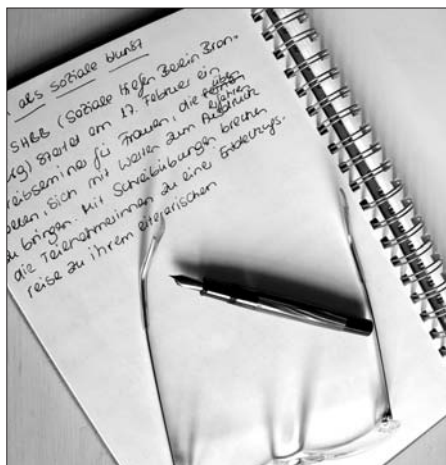 als Soziale Kunst
SHBB (Soziale Hilfen Berlin Bran-
rg) startet am 17. Februar ein
reibseminar für Frauen, die erfahren
ollen, sich mit Worten zum Ausdruck
zu bringen. Mit Schreibübungen brechen
die Teilnehmerinnen zu einer Entdeckungs-
reise zu ihrem literarischen